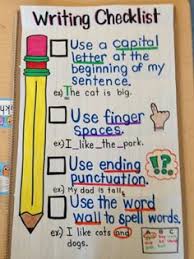 Writing Checklist
Use a capital
letter at the
beginning of my
sentence.
ex) The cat is big.
Use finger
spaces.
ex) I_like_the_park.
Use ending
punctuation.
ex) My dad is tall.
!?.
Use the word
wall to spell words.
ex) I like cats and
dogs.
A B C